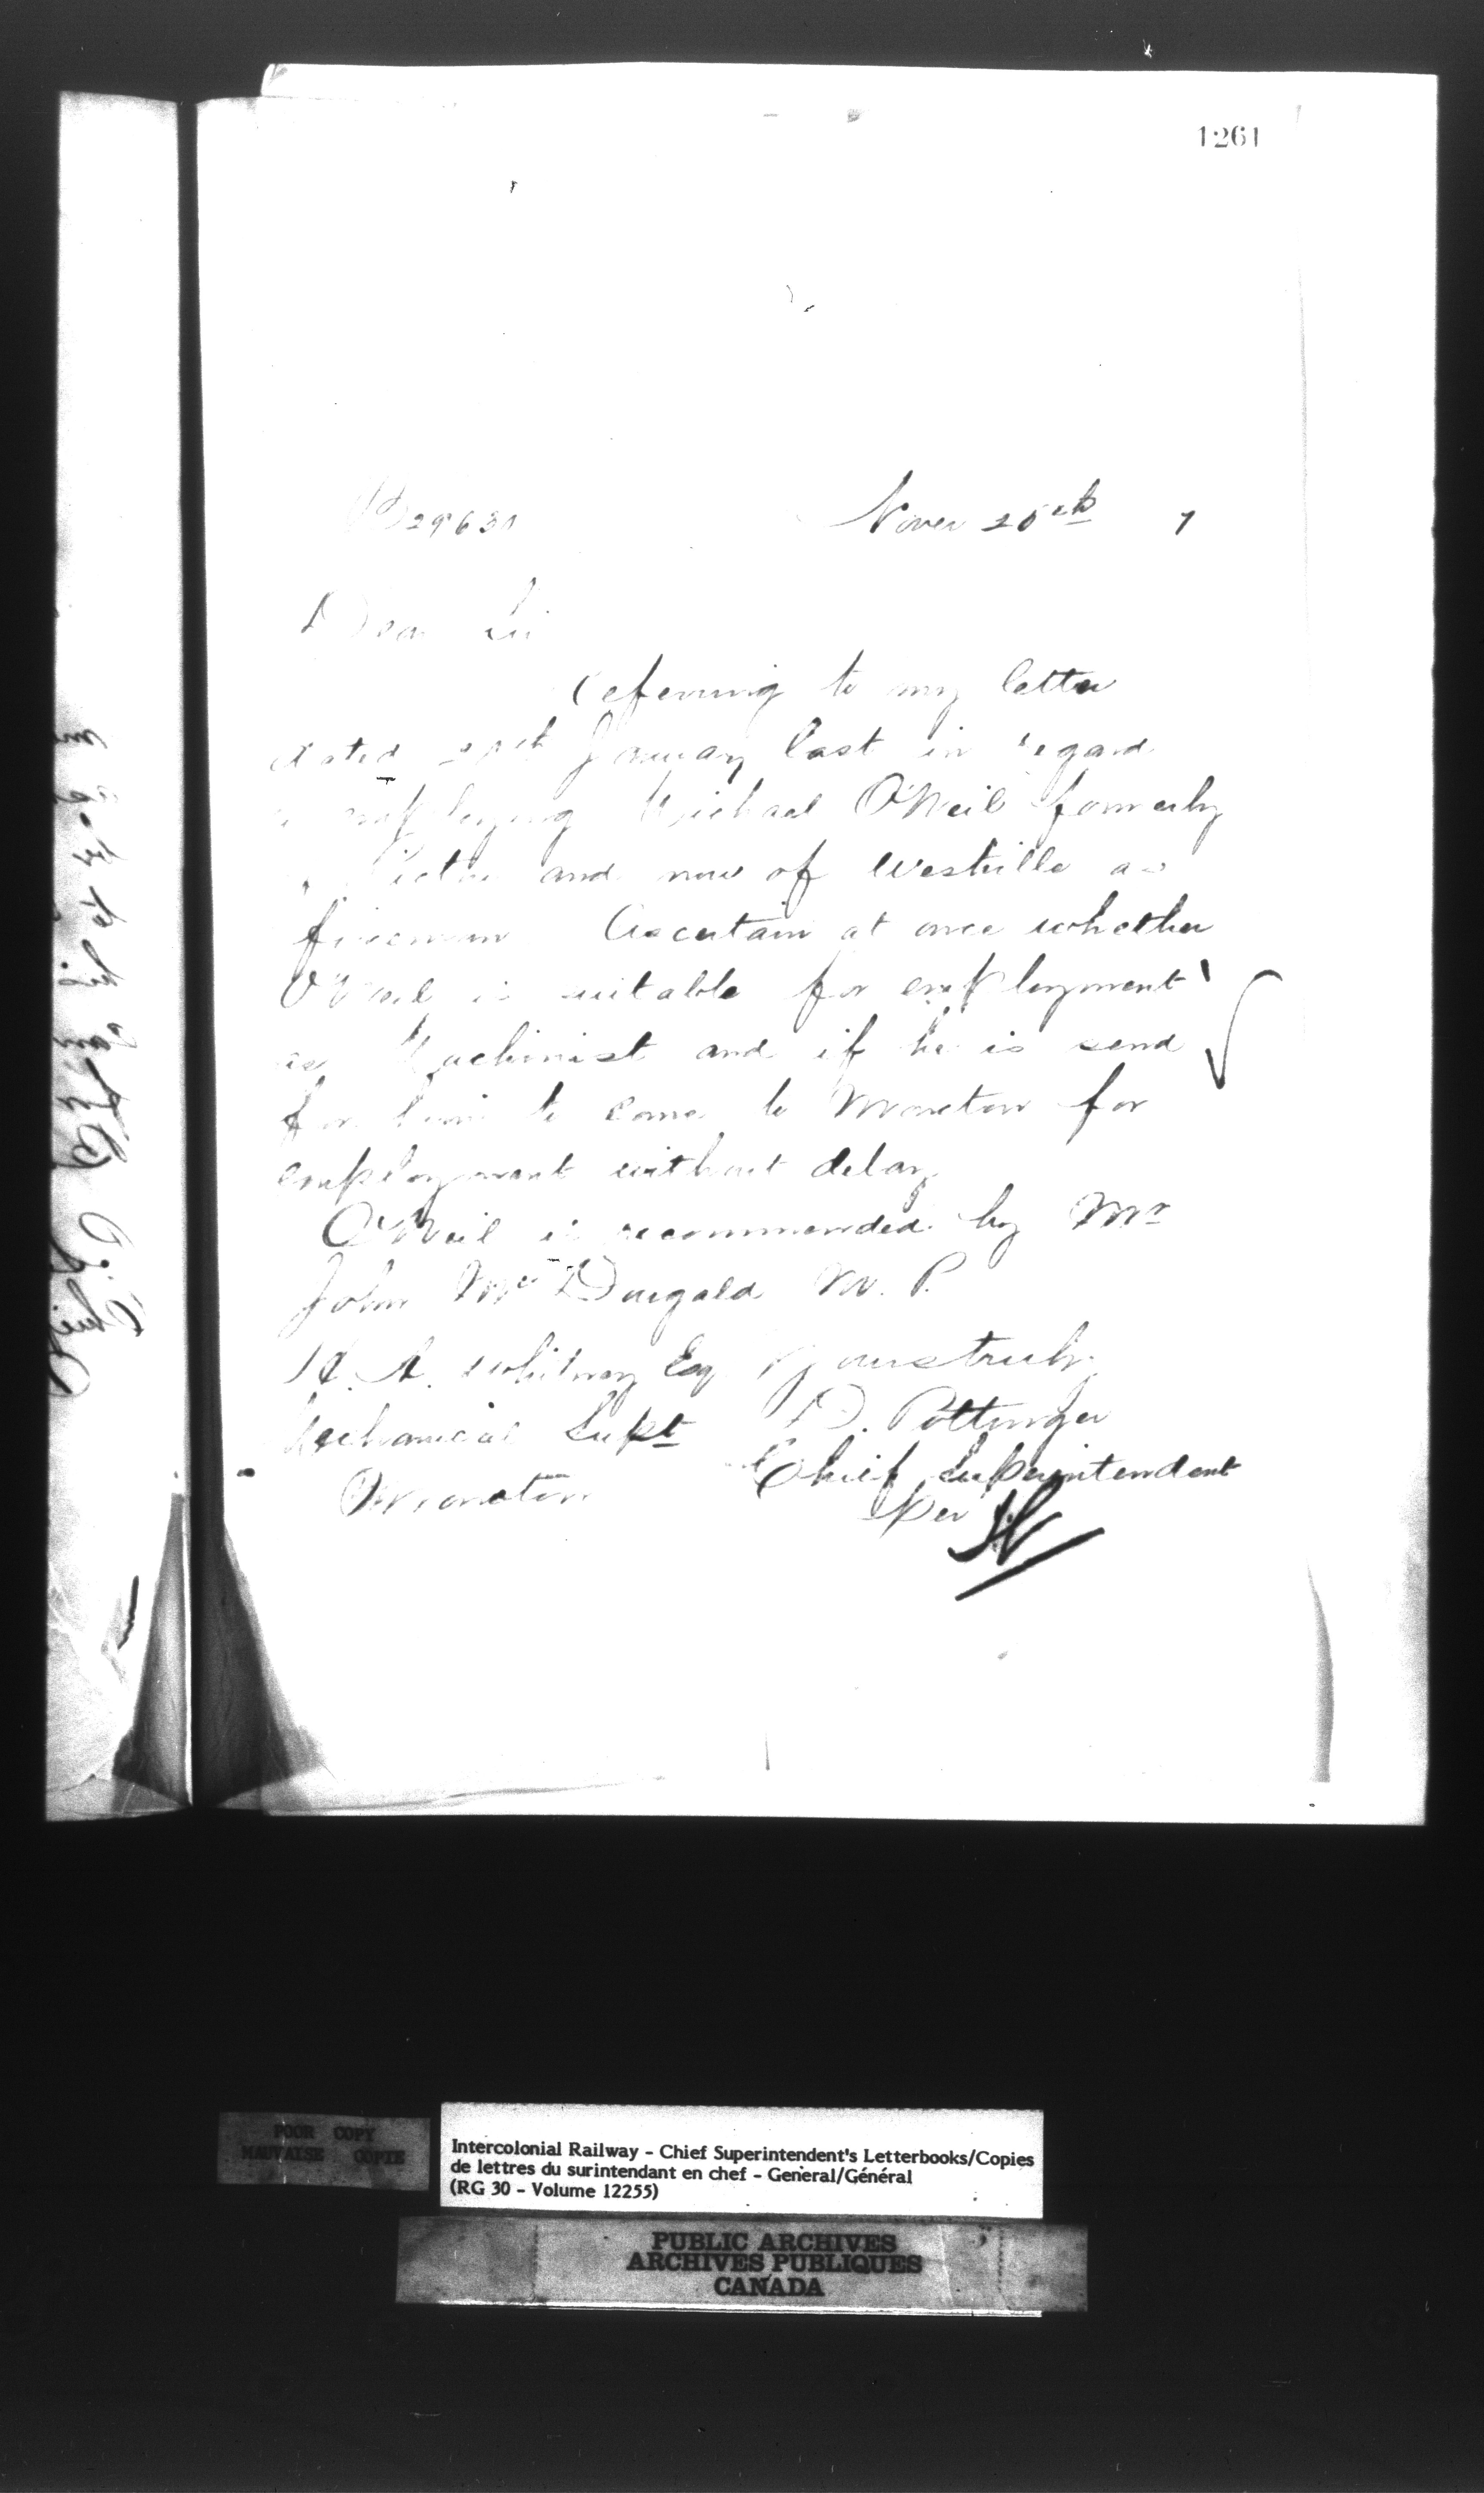 1261
Nover 25th 7
Dear Sir
Referring to my letter
dated January last in regard
employing Michael O'Neil formerly
Pictou and now of Westville as
fireman Ascertain at once whether
O'Neil is suitable for employment
as Machinist and if he is send
for him to come to Moncton for
employment without delay
O'Neil is recommended by Mr
John McDougald M. P.
H. A. Whitney Esq Yours truly
Mechanical Supt D. Pottinger
Moncton Chief Superintendent
per
POOR COPY
MAUVAISE COPIE
Intercolonial Railway - Chief Superintendent's Letterbooks/Copies
de lettres du surintendant en chef - General/Général
(RG 30 - Volume 12255)
PUBLIC ARCHIVES
ARCHIVES PUBLIQUES
CANADA